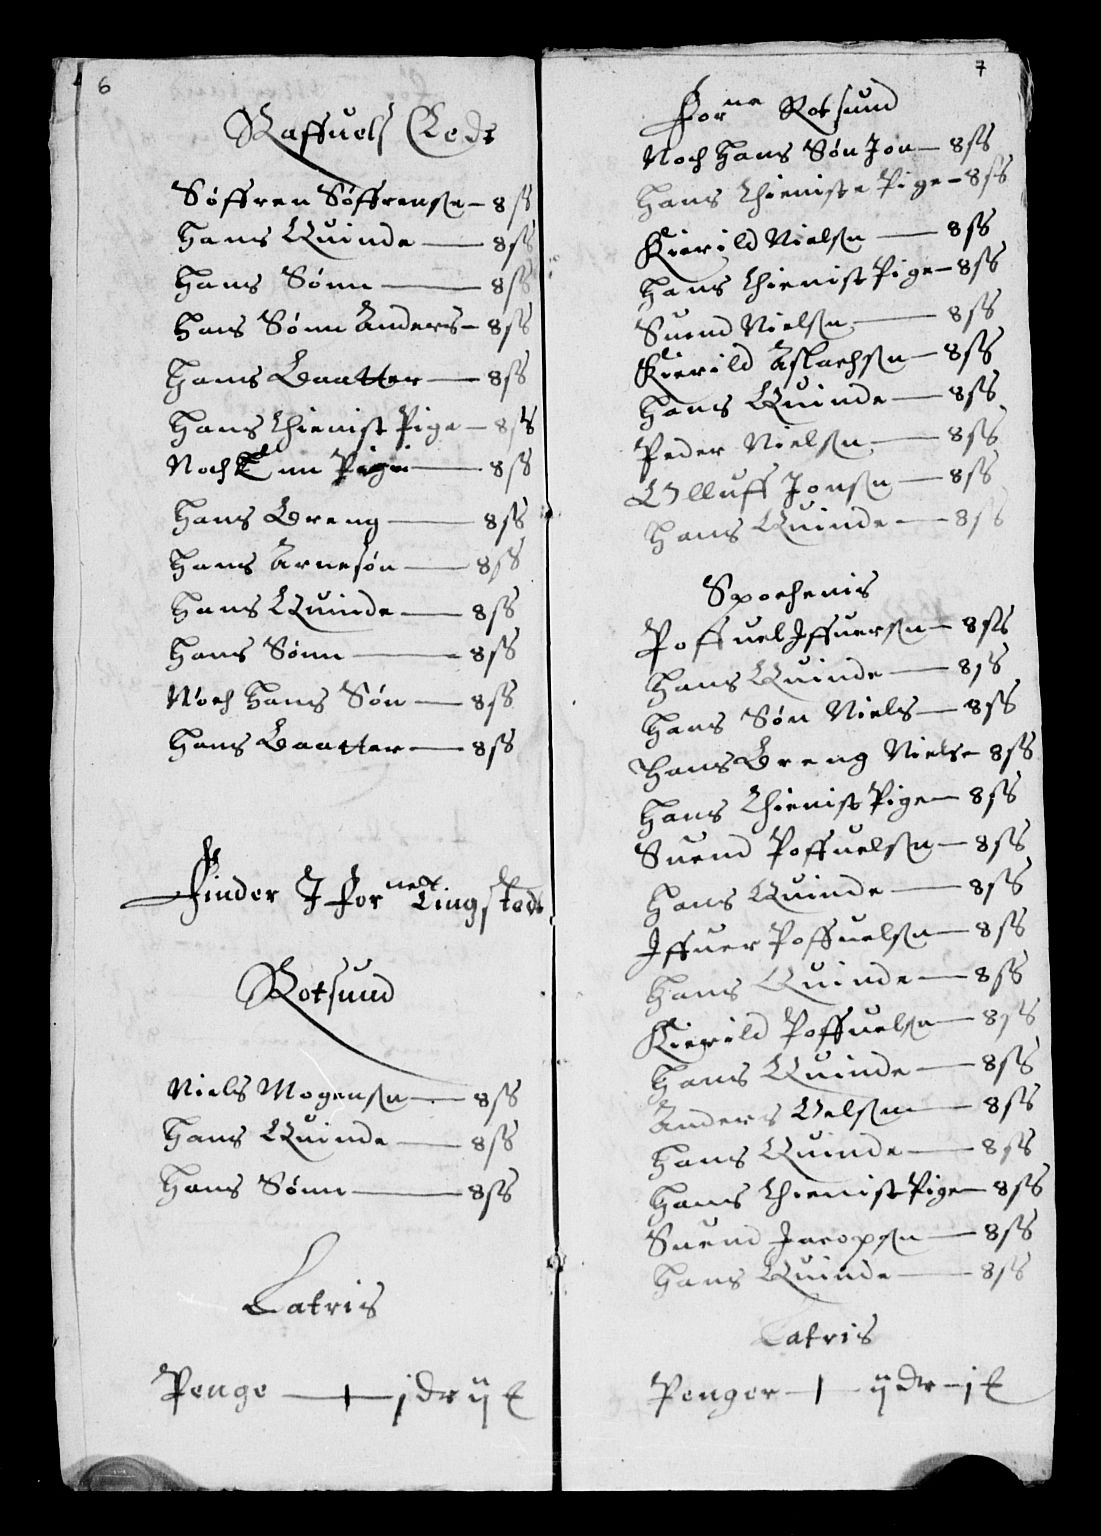 6
Raffuels Eedt
Søffren Søffrensen – 8 ß
Hans Quinde — 8 ß
Hans Sønn — 8 ß
Hans Sønn Anders – 8 ß
Hans Baatter — 8 ß
Hans thienist Pige – 8 ß
Noch Pige — 8 ß
Hans Dreng — 8 ß
Hans Arnesøn — 8 ß
Hans Quinde — 8 ß
Hans Sønn — 8 ß
Noch Hans Søn — 8 ß
Hans Baatter — 8 ß
Finder J for ne Tingsted
Rotsund
Niels Mogensen — 8 ß
Hans Quinde — 8 ß
Hans Sønn — 8 ß
Latris
Penge — j dr ij
7
For ne Rotsund
Noch Hans Søn Jon – 8 ß
Hans thieniste Pige – 8 ß
Kierild Nielsen — 8 ß
Hans thienist Pige – 8 ß
Suend Nielsen — 8 ß
Kierild Aslachsen – 8 ß
Hans Quinde — 8 ß
Peder Nielsen — 8 ß
Olluff Jonsen — 8 ß
Hans Quinde — 8 ß
Spochenis
Poffuel Jffuersen – 8 ß
Hans Quinde — 8 ß
Hans Søn Niels — 8 ß
Hans Dreng Niels – 8 ß
Hans thienist Pige – 8 ß
Suend Poffuelsen – 8 ß
Hans Quinde — 8 ß
Jffuer Poffuelsen – 8 ß
Hans Quinde — 8 ß
Kierild Poffuelsen – 8 ß
Hans Quinde — 8 ß
Anders Oelsen — 8 ß
Hans Quinde — 8 ß
Hans thienist Pige – 8 ß
Suend Jacopsen — 8 ß
Hans Quinde — 8 ß
Latris
Penger — ij dr – j